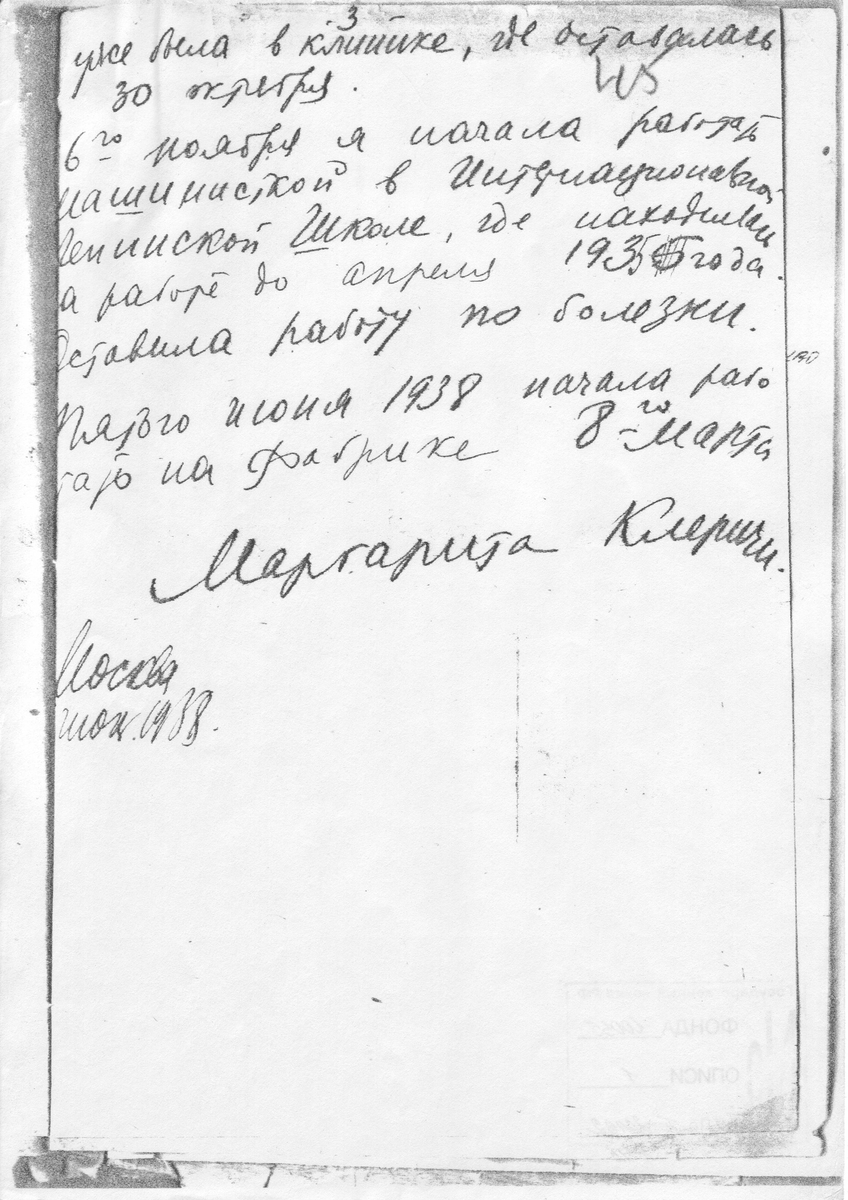 3
уже была в клинике, где оставалась
30 октября.
6го ноября я начала работать
машинисткой в Интернациональной
Ленинской Школе, где находилась
на работе до апреля 1935 года.
Оставила работу по болезки.
Пятого июня 1938 начала рабо
тать на Фабрике 8-го Марта
Маргарита Клеричи.
Москва
июн. 1938.
ФОНДА
ОПИСИ 1